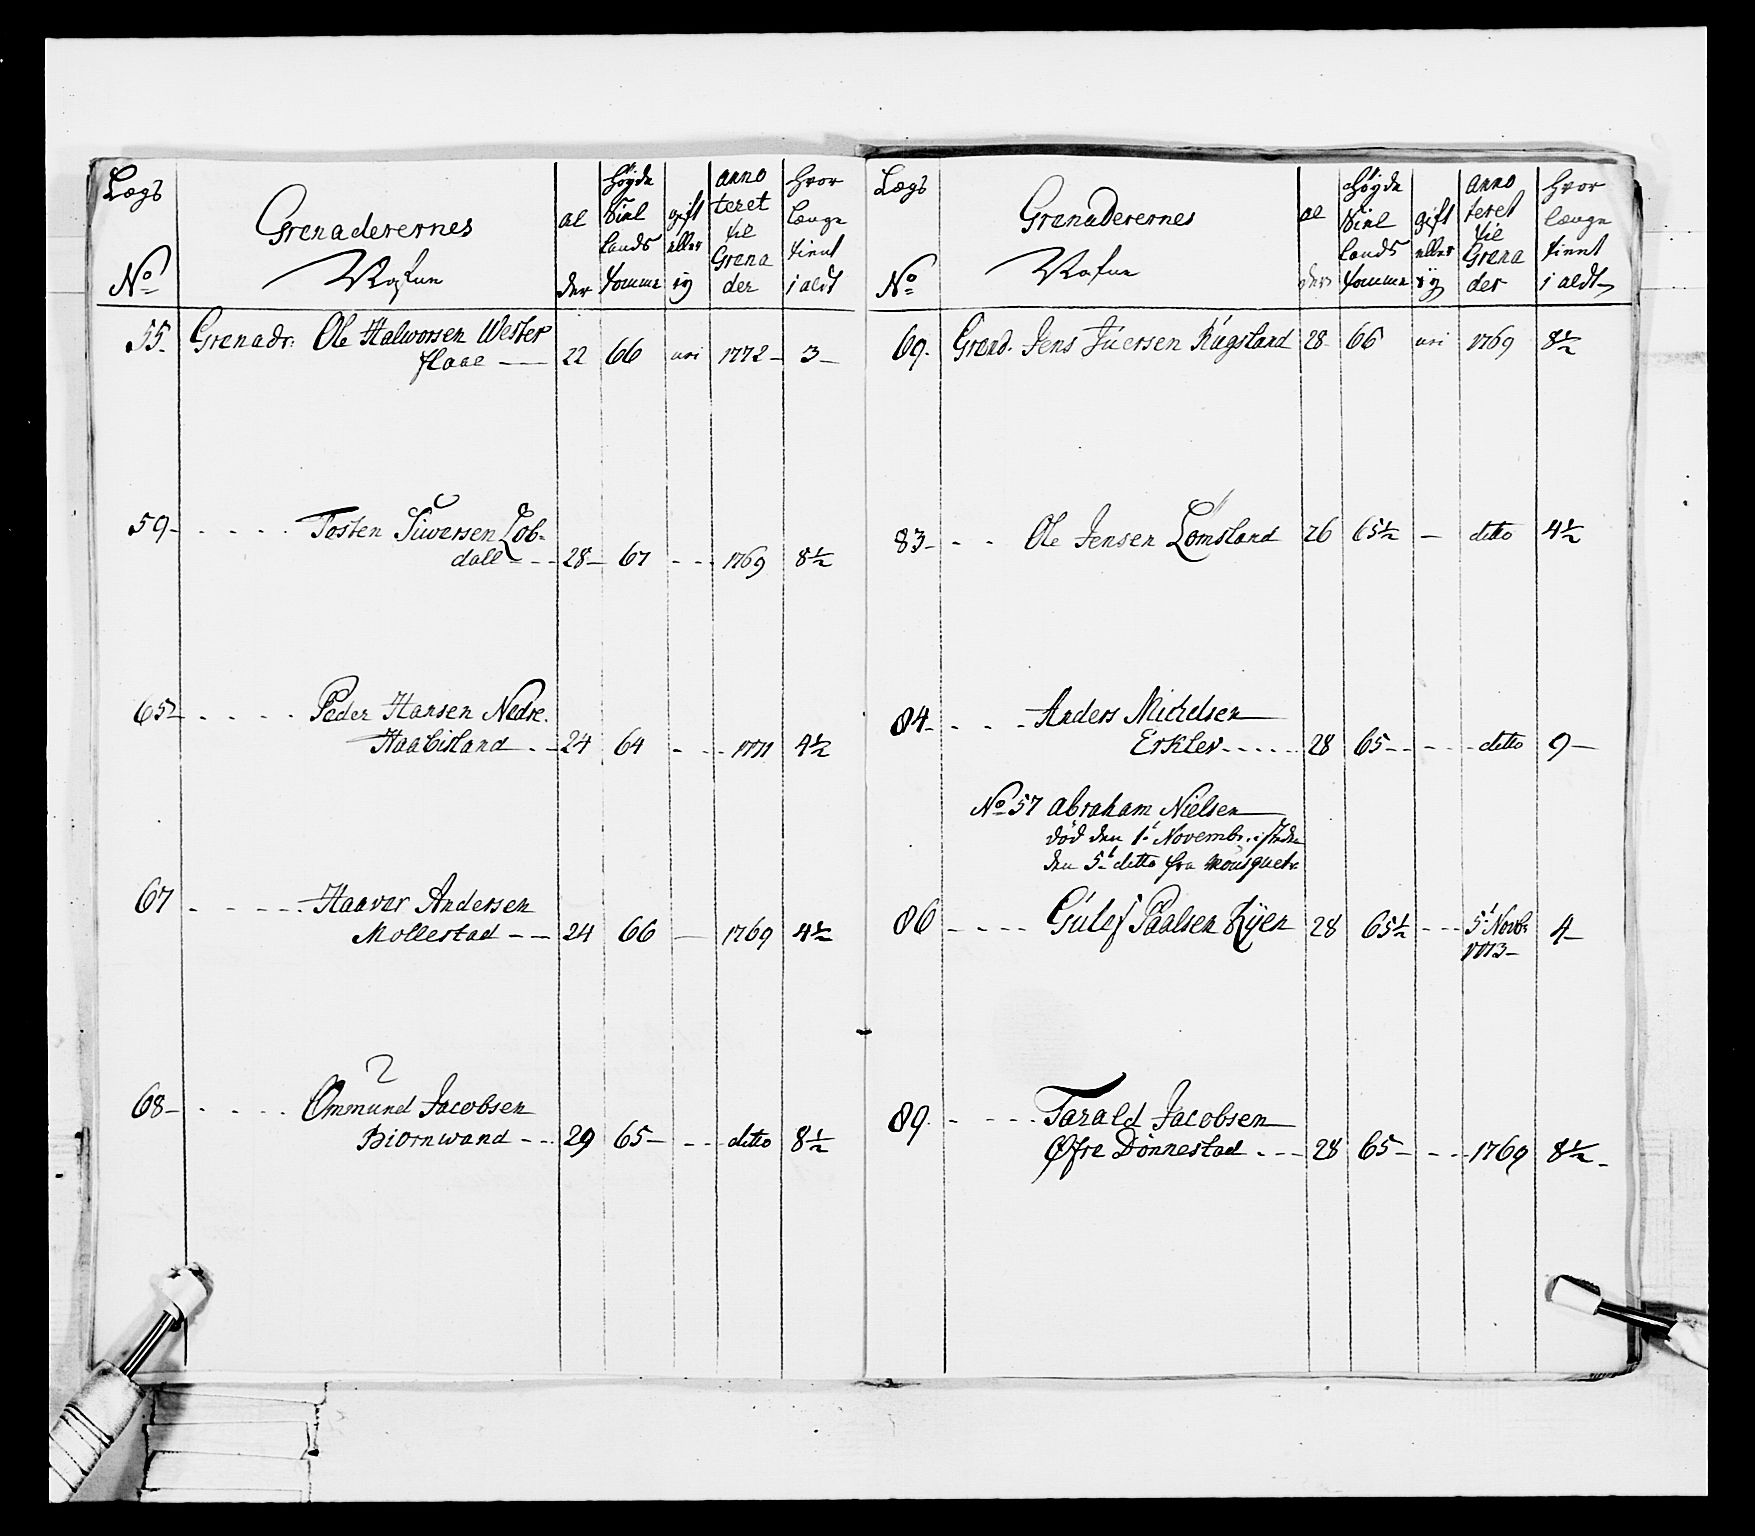 Lægs
No
Grenaderernes
Nafne
al
der
Høyde
Siel
lands
tomme
gift
eller
ey
anno
teret
til
Grena
der
Hvor
længe
tient
i aldt
55. Grenadr: Ole Halworsen Wester
flaae — 22 66 uri 1772 - 3 -
59 - Tosten Siwersen Lob-
dall - 28 - 67 - - - 1769 8½
65 - Peder Hansen Nedre.
Haabistand - - 24 64 - - - 1771 4½
67 - Haavor Andersen
Mollestad - - 24 66 - 1769 4½
68 - Ommund Jacobsen
Biornwand - - 29 65 - - - ditto 8½
Lægs
No
Grenaderernes
Nafne
al
der
Høyde
Siel
lands
tomme
gift
eller
ey
anno
teret
til
Grena
der
Hvor
længe
tient
i aldt
69. Grend. Jens Juersen Rugsland 28 66 uri 1769 8½
83 - - - Ole Jensen Lomsland 26 65½ - ditto 4½
84 - - - Anders Michelsen
Erklev - - - 28 65 - - - ditto 9 -
No 57 Abraham Nielsen
död den 1t Novembr. isteden
den 5t ditto fra Mousquetr
86 - - - Gulef Paalsen Kyen 28 65½ - - - 5t Novbr 4 -
1773 -
89. - - - Tarald Jacobsen
Øfre Donnestad - - - 28 65 - - - 1769 8½ -